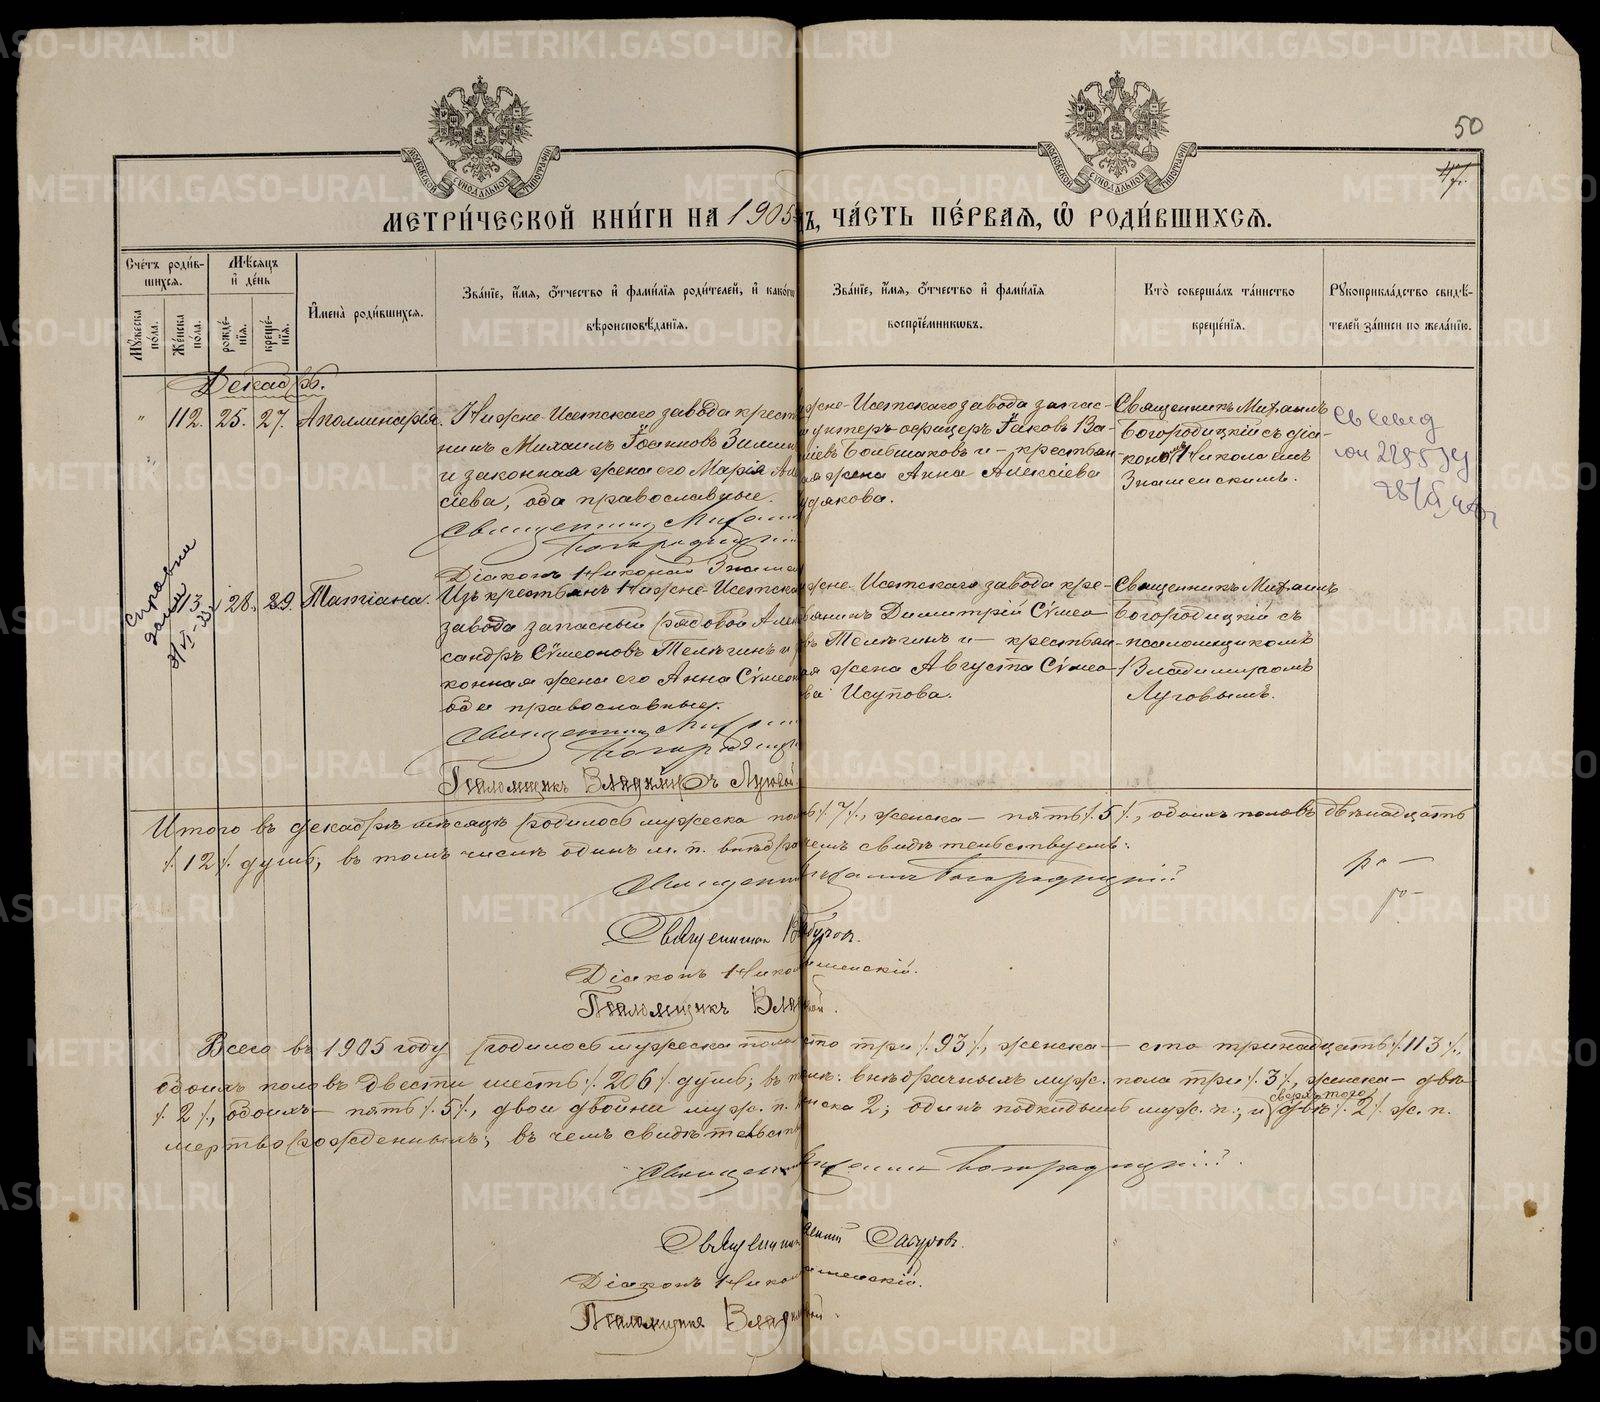 50
47.
МЕТРИ́ЧЕСКОЙ КНИ́ГИ НА 1905 ДЪ, ЧА́СТЬ ПЕ́РВАЯ, Ѿ РОДИ́ВШИХСЯ.
Сче́тъ роди́в-
шихся.
Мѣ́сяцъ
и҆ де́нь
Мꙋ́жеска по́ла.
Же́нска по́ла.
рожде́-нїѧ.
креще́-нїѧ.
И҆мена̀ роди́вшихся.
Зва́нїе, и҆́мѧ, ѻ҆́тчество и҆ фами́лїѧ роди́телей, и҆ како́гѡ
вѣроисповѣ́данїѧ.
Зва́нїе, и҆́мѧ, ѻ҆́тчество и҆ фами́лїѧ
воспрїе́мникѡвъ.
Кто̀ соверша́лъ та́инство
креще́нїѧ.
Рꙋкоприкла́дство свидѣ́-
телей за́писи по жела́нїю.
Декабрь.
" 112. 25. 27. Аполлинарія.
Нижне-Исетскаго завода крест
нинъ Михаилъ Іоанновъ Зимин
и законная жена его Марія Але
сіева, оба православные.
Священникъ Михаил
Богородицкі
Діаконъ Николай Знаме
жне-Исетскаго завода запас-
унтеръ-офицеръ Іаковъ Ва-
ліевъ Большаковъ и - крестьян-
ая жена Анна Алексіева
удякова.
Священникъ Михаилъ
Богородицкій съ діа-
кономъ Николаемъ
Знаменскимъ.
113. 28. 29. Татіана.
Изъ крестьянъ Нижне-Исетска
завода запасный рядовой Алек
сандръ Сѵмеоновъ Телѣгинъ и
конная жена его Анна Сѵмеон
оба православные.
Священникъ Михаи
Богородицкі
Псаломщикъ Владиміръ Луговой
жне-Исетскаго завода кре-
янинъ Димитрій Сѵмео-
въ Телѣгинъ и - крестьян-
ая жена Августа Сѵмео-
ва Исупова.
Священникъ Михаилъ
Богородицкій съ
псаломщикомъ
Владиміромъ
Луговымъ.
справка
дана
Итого въ декабрѣ мѣсяцѣ родилось мужеска пол ь ⁒ 7 ⁒, женска - пять ⁒ 5 ⁒, обоихъ половъ двѣнадцать
⁒ 12 ⁒ душъ; въ томъ числѣ одинъ м. п. внѣбра чемъ свидѣтельствуемъ:
Священни ихаилъ Богородицкій
Священникъ Сабуровъ.
Діаконъ Никола менскій.
Псаломщикъ Влад вой.
Всего въ 1905 году родилось мужеска пола сто три ⁒ 93 ⁒, женска - сто тринадцать ⁒ 113 ⁒,
обоихъ половъ двести шесть ⁒ 206 ⁒ душъ; въ т мъ: внѣбрачныхъ муж. пола три ⁒ 3 ⁒, женска - двѣ
сверхъ того
⁒ 2 ⁒, обоихъ - пять ⁒ 5 ⁒, двои двойни муж. п. нска 2; одинъ подкидышъ муж. п.; и двѣ ⁒ 2 ⁒ ж. п.
мертворожденныхъ; въ чемъ свидѣтельств
Священ ихаилъ Богородицкій.
Священник ений Сабуровъ.
Діаконъ Никола менскій.
Псаломщикъ Влади вой.
METRIKI.GASO-URAL.RU